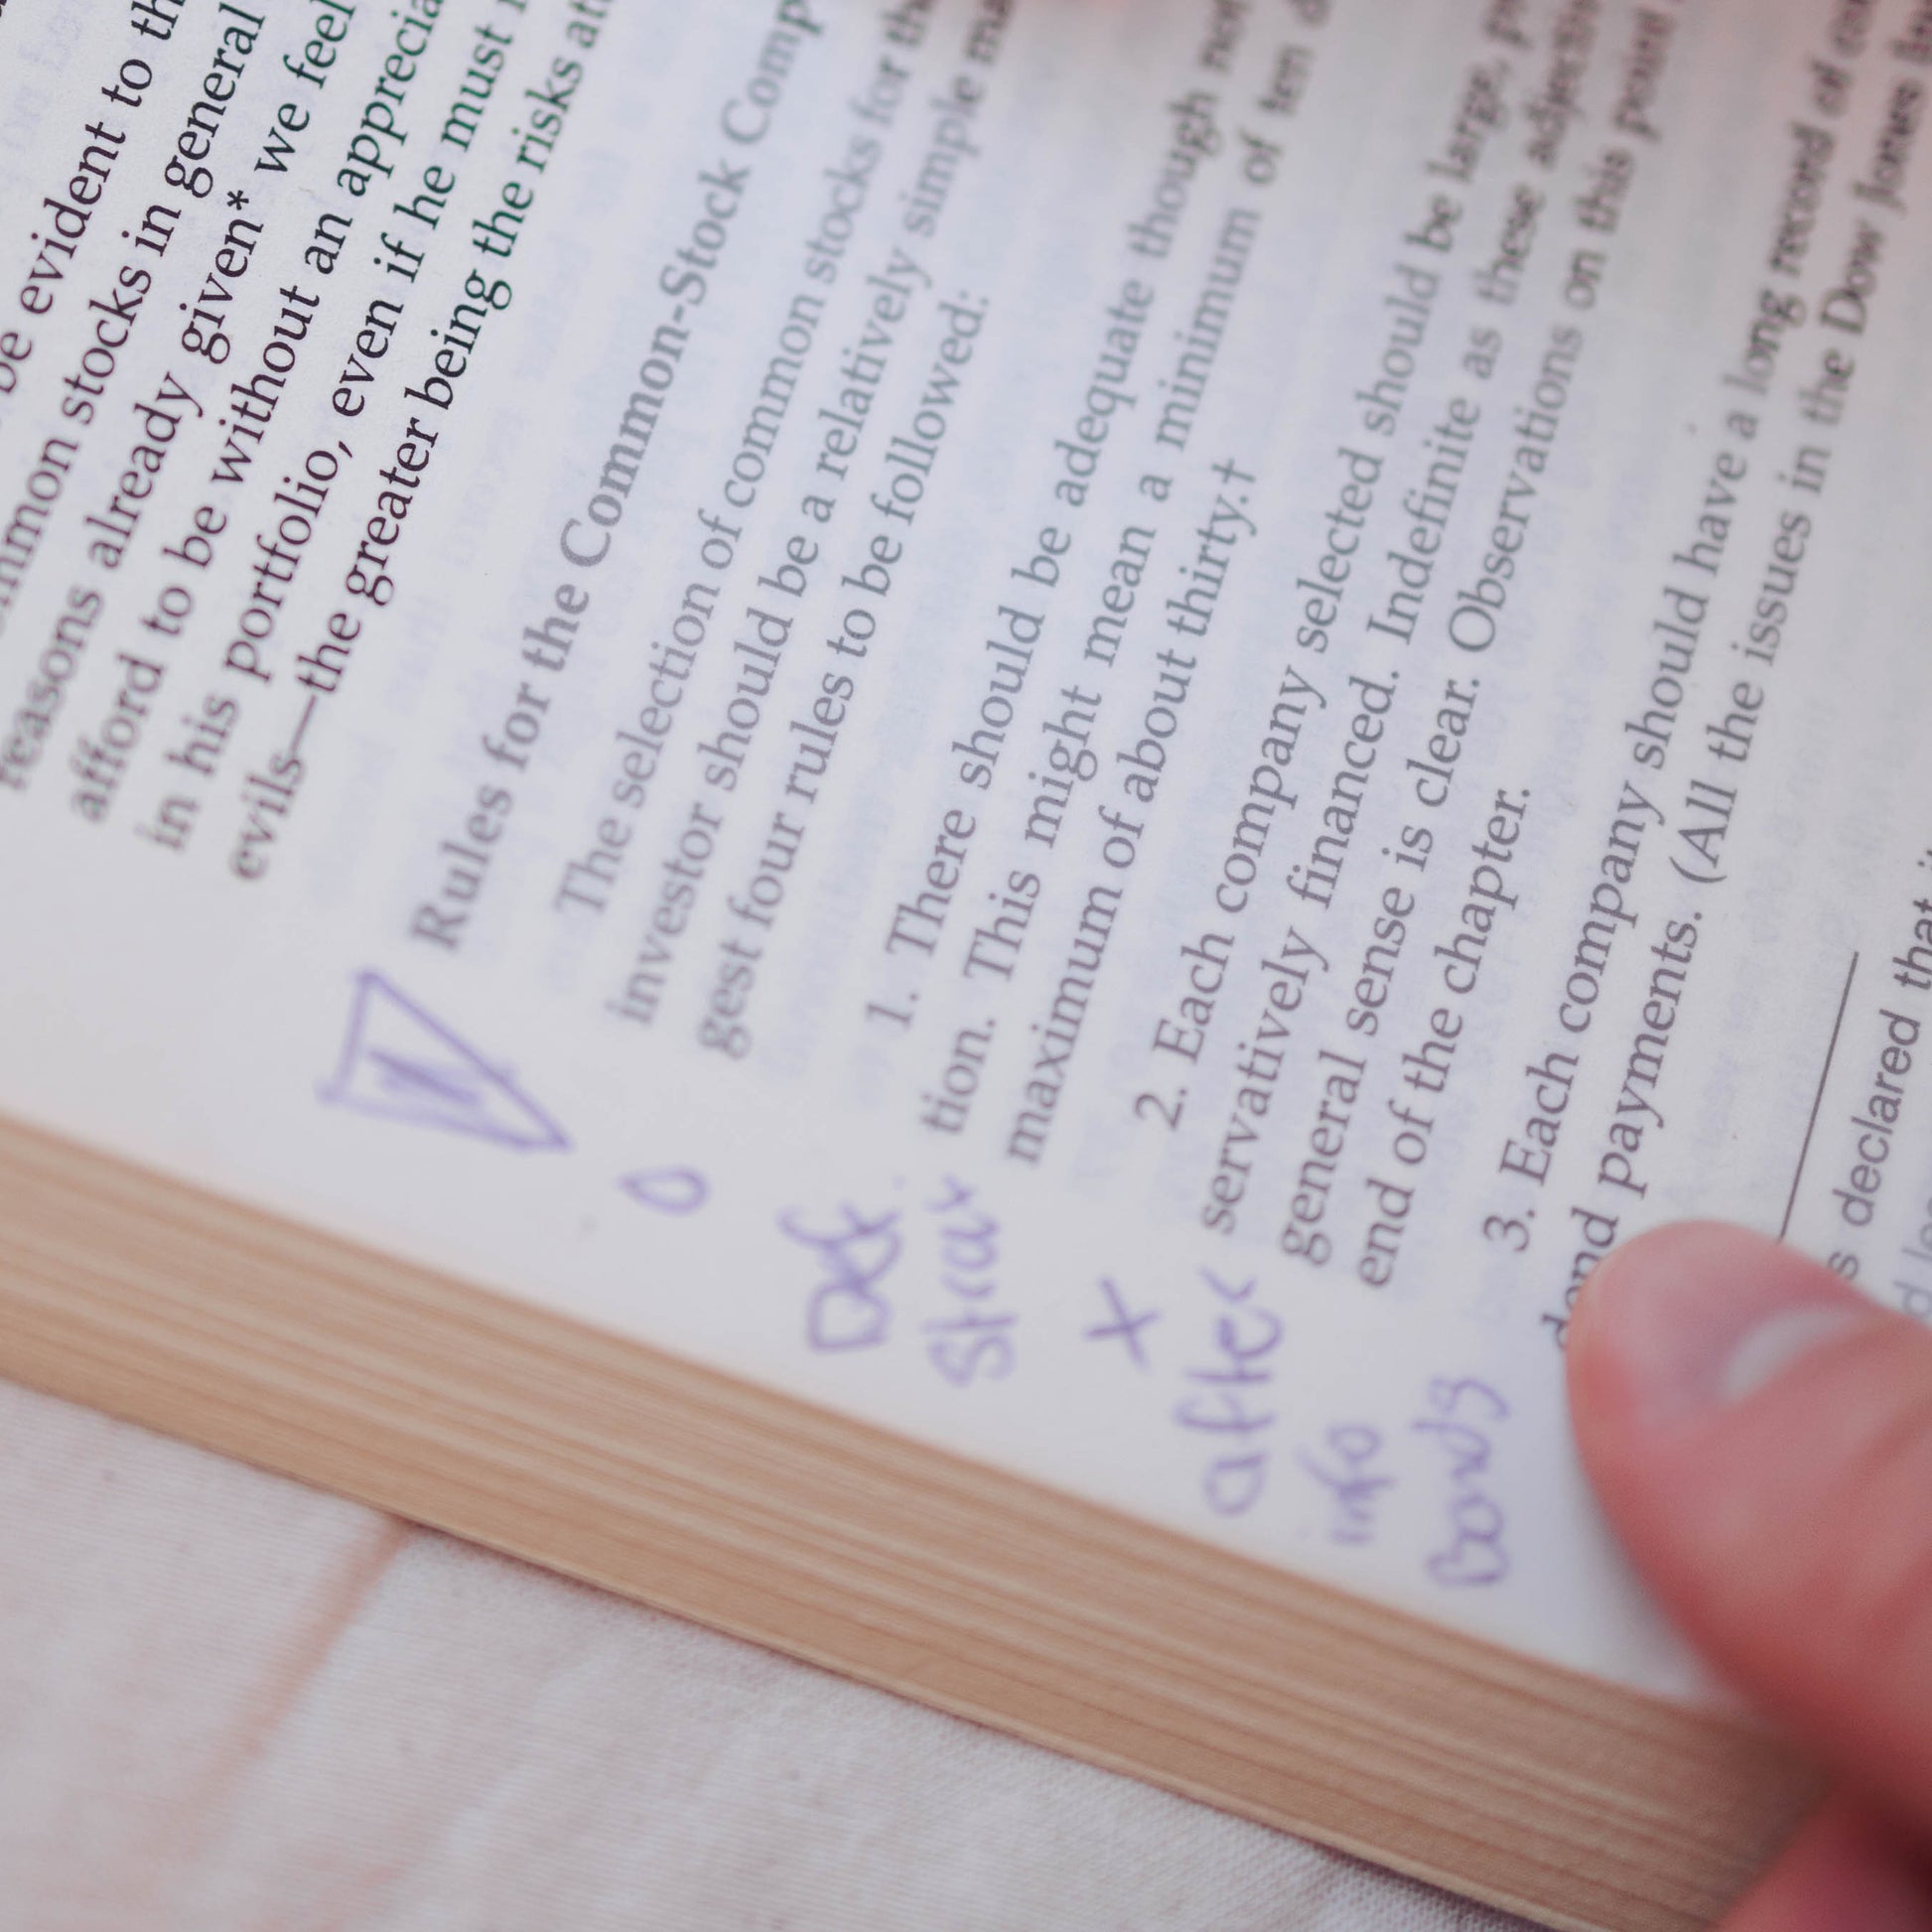 be evident to th
mmon stocks in general
reasons already given* we feel
afford to be without an apprecia
in his portfolio, even if he must
evils—the greater being the risks at
Rules for the Common-Stock Comp
The selection of common stocks for th
investor should be a relatively simple ma
gest four rules to be followed:
1. There should be adequate though not
tion. This might mean a minimum of ten d
maximum of about thirty.†
2. Each company selected should be large, p
servatively financed. Indefinite as these adjectiv
general sense is clear. Observations on this point
end of the chapter.
3. Each company should have a long record of con
dend payments. (All the issues in the Dow Jones
s declared that
after
info